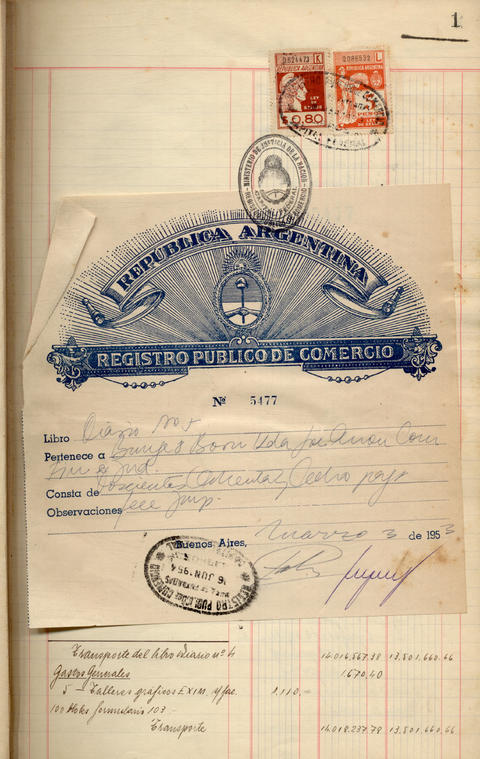 1
0624473 K
REPUBLICA ARGENTINA
LEY DE SELLOS
$ 0.80
0086532 L
REPUBLICA ARGENTINA
LEY DE SELLOS
CAPITAL FEDERAL
MINISTERIO DE JUSTICIA DE LA NACION
REPUBLICA ARGENTINA
REGISTRO PUBLICO DE COMERCIO
Nº 5477
Libro Diario no 5
Pertenece a Bunge & Born Ltda
Consta de
Observaciones
Buenos Aires, marzo 3 de 1953
REGISTRO PUBLICO DE COMERCIO
16 JUN 1954
Transporte del libro Diario nº 4 14.016.567.38 13.501.660.66
Gastos Generales 1.670,40
5 — Talleres gráficos EXIM. s/fac. 1.110.-
100 Hojas formulario 103 -
Transporte 14.018.237.78 13.501.660.66